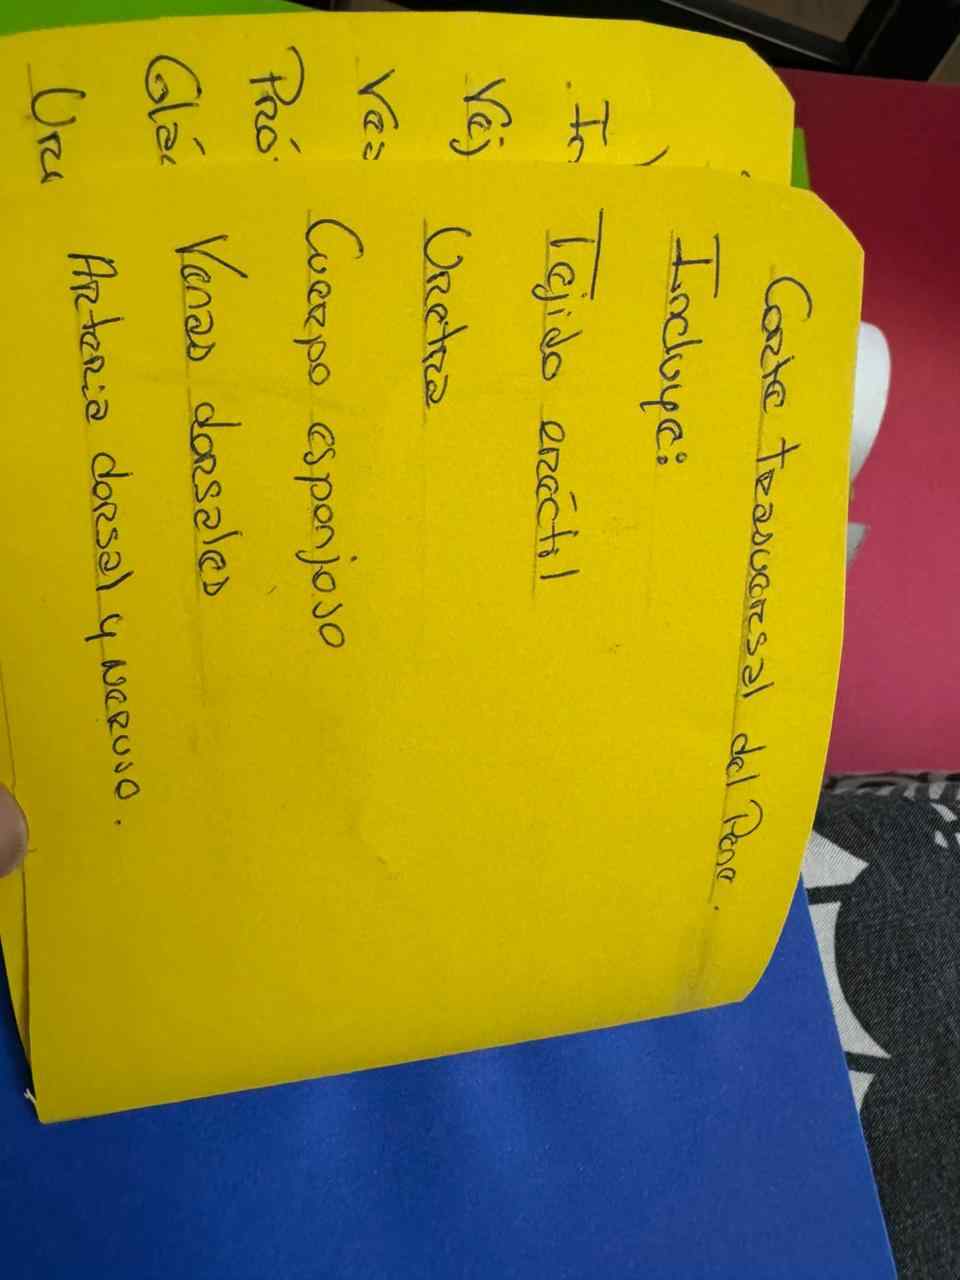 Corte trasversal del Pene.
Incluye:
Tejido eréctil
Uretra
Cuerpo esponjoso
Venas dorsales
Arteria dorsal y nervuso.
In
Vej
Ves
Pró
Glá
Uru